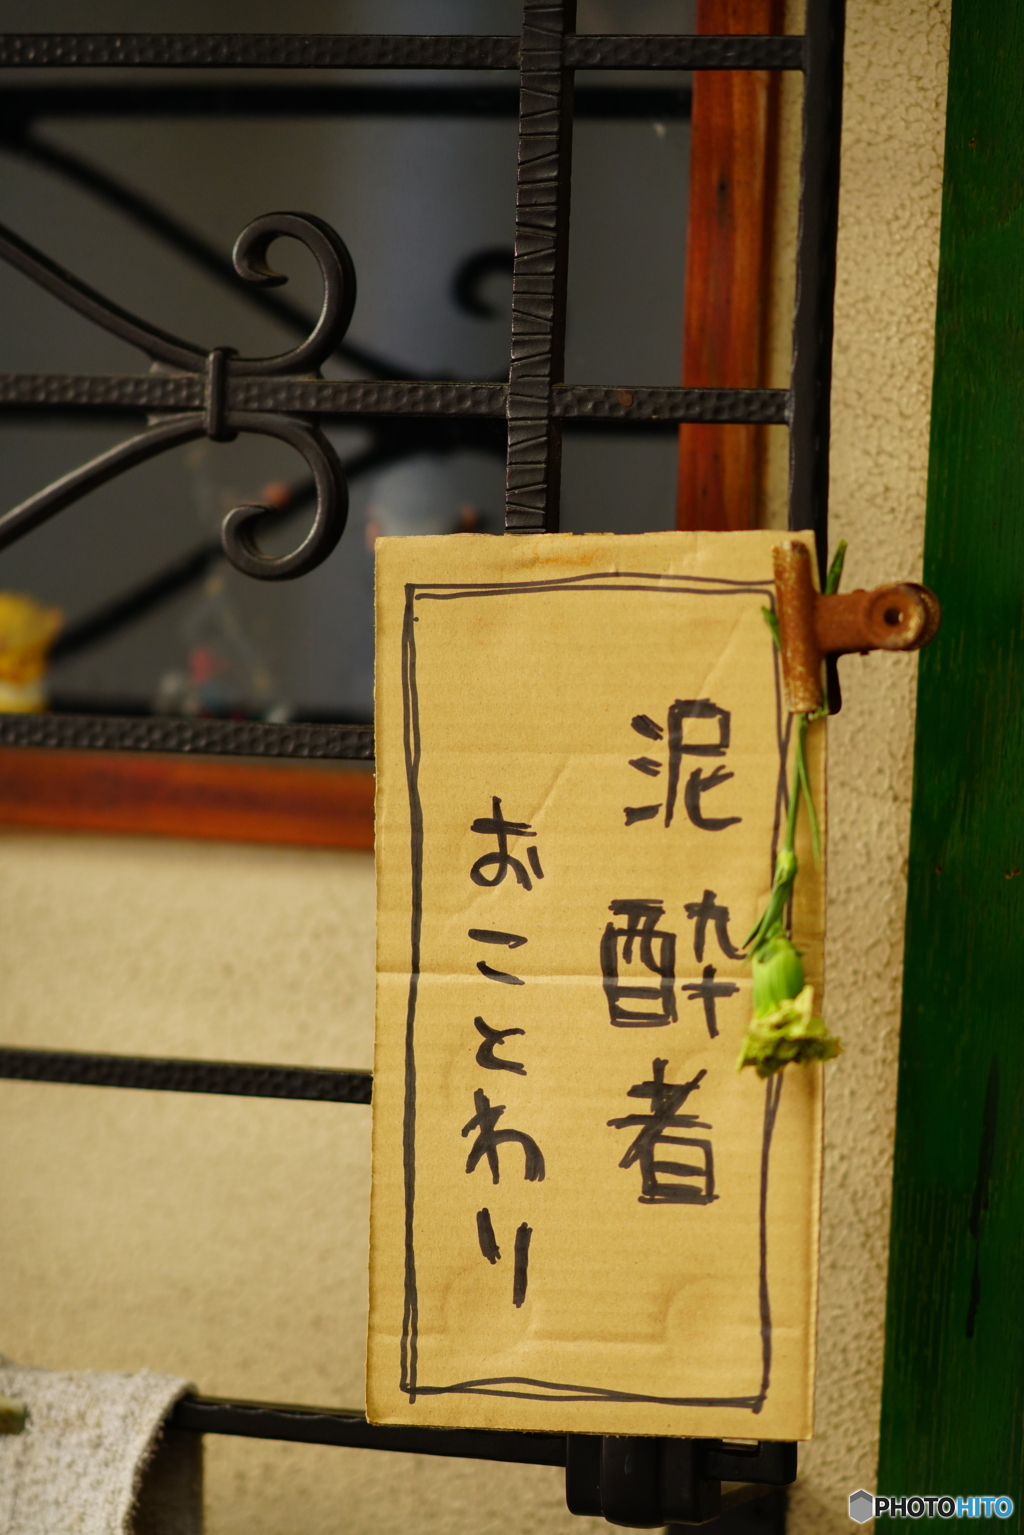 泥酔者
おことわり
PHOTOHITO